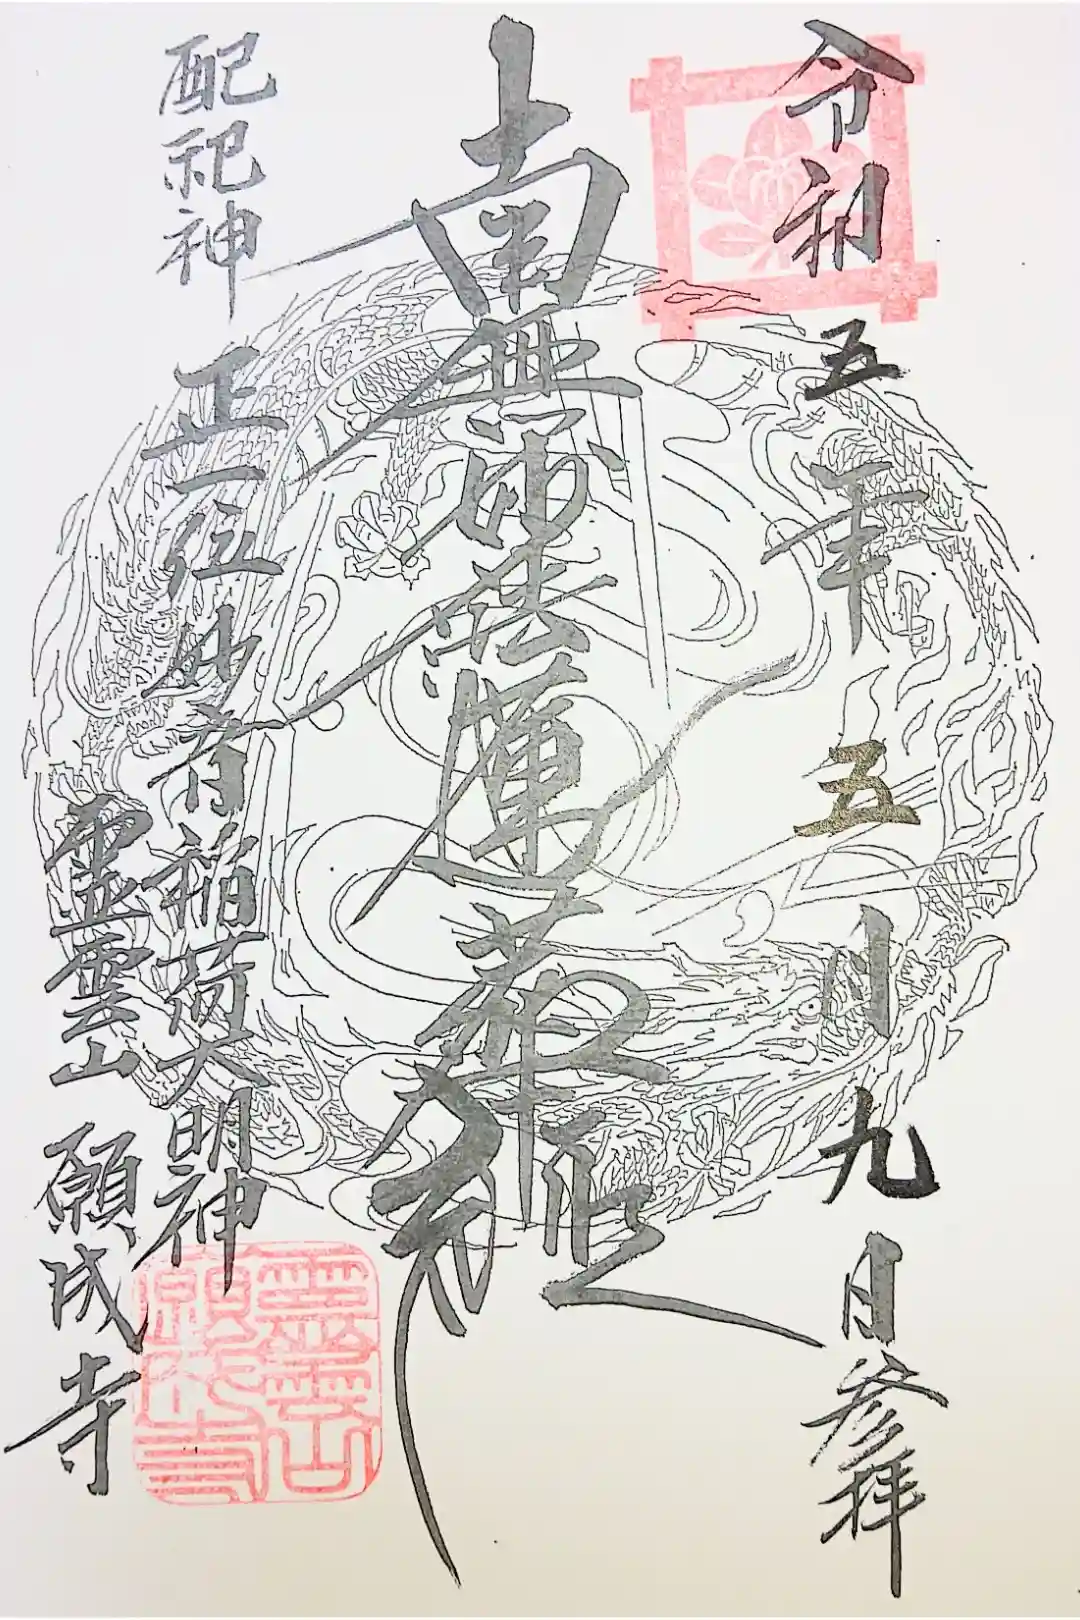 令和五年五月九日参拝
南無妙法蓮華経
配祀神 正一位妙有稲荷大明神
霊雲山 願成寺
霊雲山
願成寺